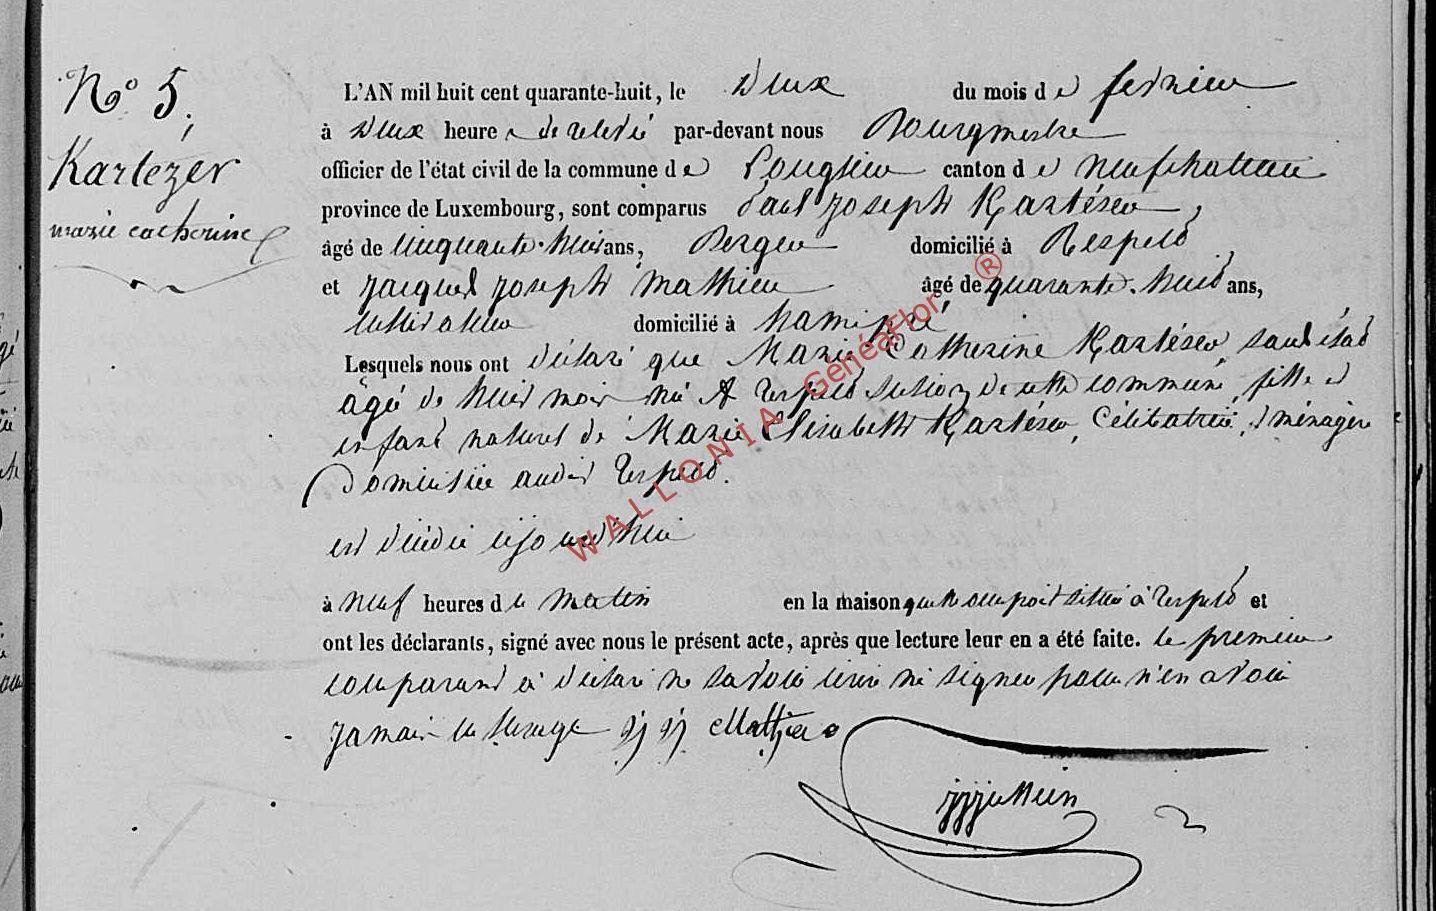 N° 5,
Karlezer
marie catherine
L'AN mil huit cent quarante-huit, le deux du mois de fevrier
à deux heures de relevé par-devant nous Bourgmestre
officier de l'état civil de la commune de Louglier canton de neufchateau
province de Luxembourg, sont comparus Paul Joseph Kartéser,
âgé de cinquante-huit ans, Berger domicilié à Respelt,
et Jacques Joseph Mathieu âgé de quarante-huit ans,
cultivateur domicilié à hamipré
Lesquels nous ont déclaré que Marie Catherine Kartéser, sans état
agé de huit mois né à Respelt section de cette commune, fille et
enfant naturel de Marie Elisabeth Kartéser, Célibatrie, ménagère
Domiciliée audit Respelt.
est décédée cejourd'hui
à neuf heures du matin en la maison quelle occupoit située à Respelt et
ont les déclarants, signé avec nous le présent acte, après que lecture leur en a été faite. le premier
comparant a déclaré ne savoir écrire ni signer pour n'en avoir
jamais eu l'usage J J Mathieu
WALLONIA GénéaFlor ®